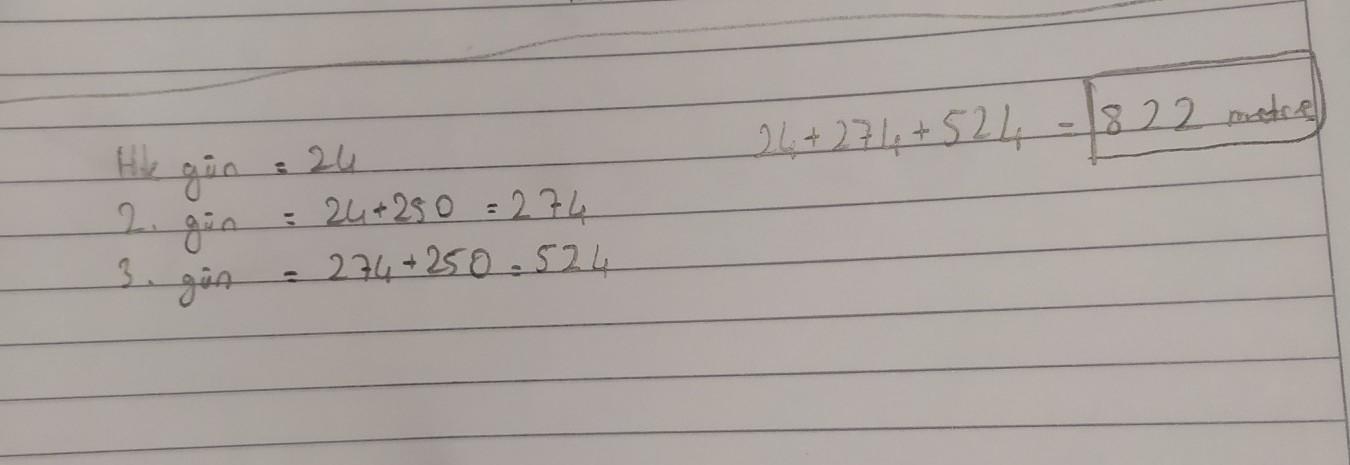 İlk gün = 24
2. gün = 24+250 = 274
3. gün = 274+250 = 524
24+274+524 = 822 metre